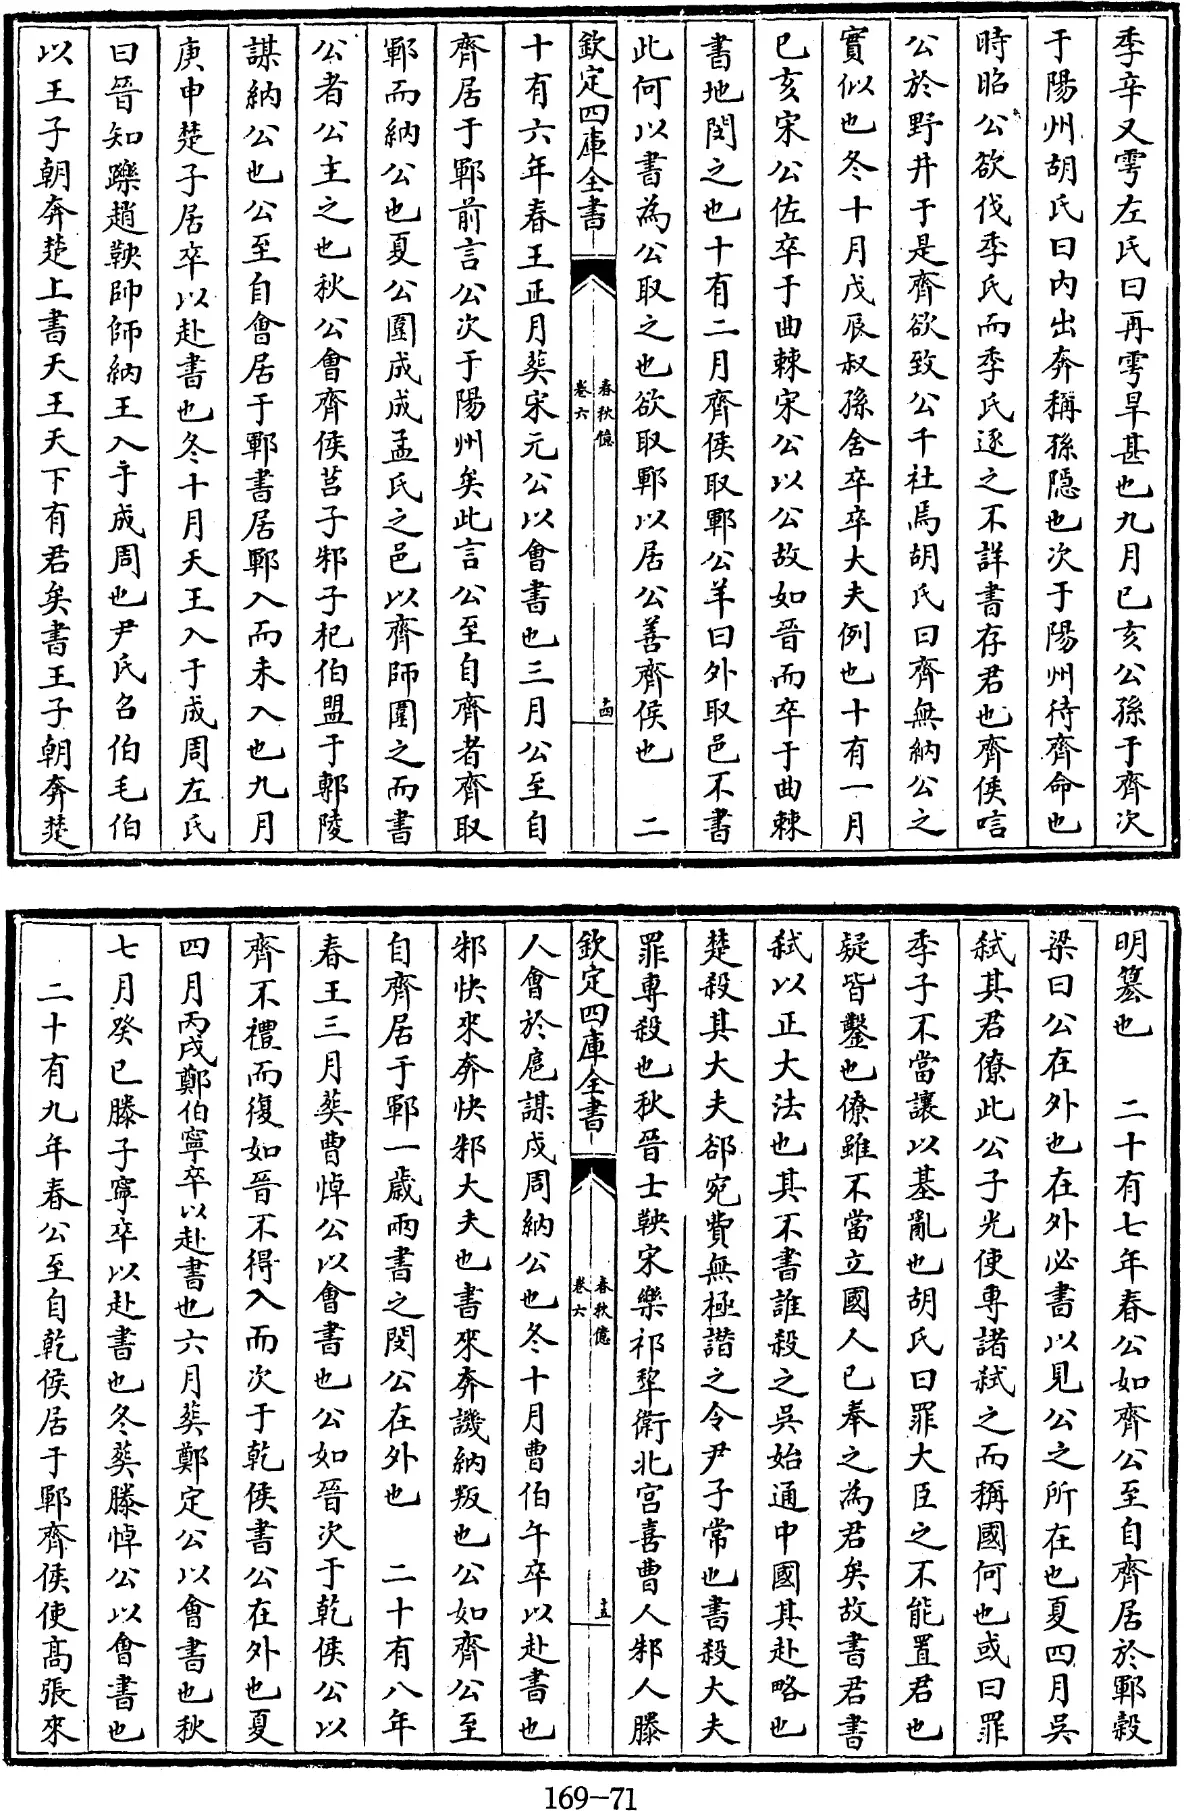 季辛又雩左氏曰再雩旱甚也九月己亥公孫于齊次
于陽州胡氏曰内出奔稱孫隱也次于陽州待齊命也
時昭公欲伐季氏而季氏逐之不詳書存君也齊侯唁
公於野井于是齊欲致公千社焉胡氏曰齊無納公之
實似也冬十月戊辰叔孫舍卒卒大夫例也十有一月
己亥宋公佐卒于曲棘宋公以公故如晉而卒于曲棘
書地閔之也十有二月齊侯取鄆公羊曰外取邑不書
此何以書為公取之也欲取鄆以居公善齊侯也　二
欽定四庫全書
春秋億
卷六
十四
十有六年春王正月葬宋元公以會書也三月公至自
齊居于鄆前言公次于陽州矣此言公至自齊者齊取
鄆而納公也夏公圍成成孟氏之邑以齊師圍之而書
公者公主之也秋公會齊侯莒子邾子杞伯盟于鄟陵
謀納公也公至自會居于鄆書居鄆入而未入也九月
庚申楚子居卒以赴書也冬十月天王入于成周左氏
曰晉知躒趙鞅帥師納王入于成周也尹氏召伯毛伯
以王子朝奔楚上書天王天下有君矣書王子朝奔楚
明篡也　二十有七年春公如齊公至自齊居於鄆穀
梁曰公在外也在外必書以見公之所在也夏四月吳
弑其君僚此公子光使專諸弑之而稱國何也或曰罪
季子不當讓以基亂也胡氏曰罪大臣之不能置君也
疑皆鑿也僚雖不當立國人已奉之為君矣故書君書
弑以正大法也其不書誰殺之吳始通中國其赴略也
楚殺其大夫郤宛費無極譖之令尹子常也書殺大夫
罪專殺也秋晉士鞅宋樂祁犂衛北宮喜曹人邾人滕
欽定四庫全書
春秋億
卷六
十五
人會於扈謀戍周納公也冬十月曹伯午卒以赴書也
邾快來奔快邾大夫也書來奔譏納叛也公如齊公至
自齊居于鄆一歲兩書之閔公在外也　二十有八年
春王三月葬曹悼公以會書也公如晉次于乾侯公以
齊不禮而復如晉不得入而次于乾侯書公在外也夏
四月丙戌鄭伯寧卒以赴書也六月葬鄭定公以會書也秋
七月癸巳滕子寧卒以赴書也冬葬滕悼公以會書也
二十有九年春公至自乾侯居于鄆齊侯使高張來
169-71